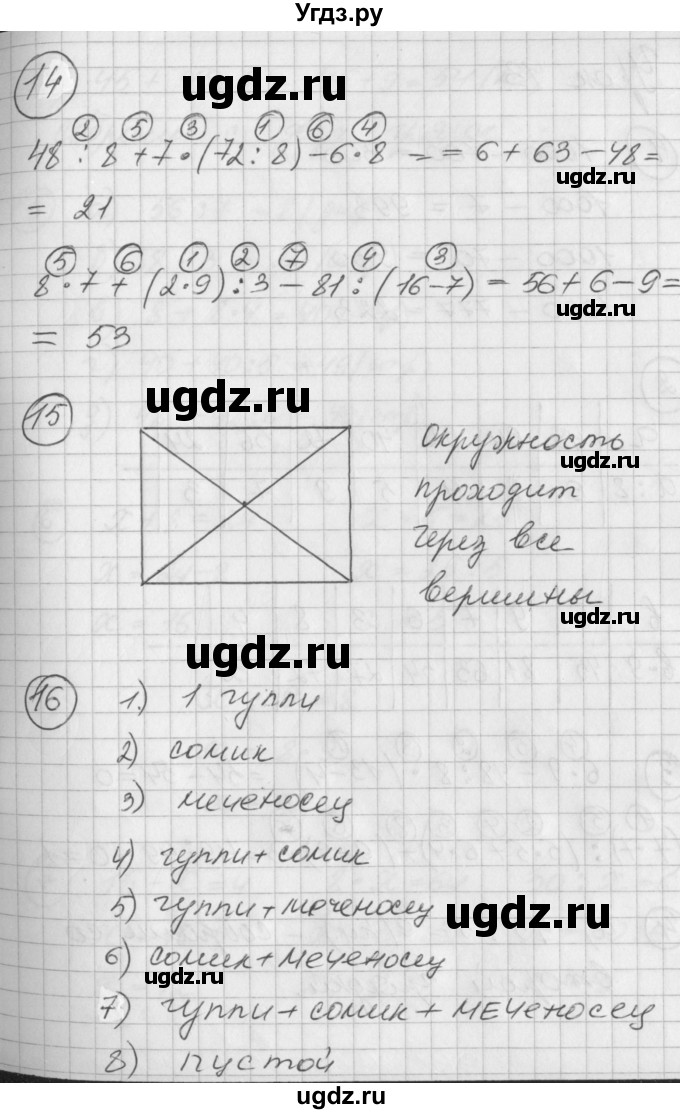 Угдз.ру
14
ugdz.ru
2 5 3 1 6 4
48 : 8 + 7 • (72 : 8) – 6 • 8 = = 6 + 63 – 48 =
ugdz.ru
= 21
5 6 1 2 7 4 3
8 • 7 + (2 • 9) : 3 – 81 : (16 – 7) = 56 + 6 – 9 =
ugdz.ru
= 53
ugdz.ru
15
Окружность
ugdz.ru
проходит
через все
вершины
ugdz.ru
ugdz.ru
16
1) 1 гуппи
2) сомик
3) меченосец
4) гуппи + сомик
5) гуппи + меченосец
ugdz.ru
6) сомик + меченосец
ugdz.ru
7) гуппи + сомик + меченосец
8) пустой
ugdz.ru